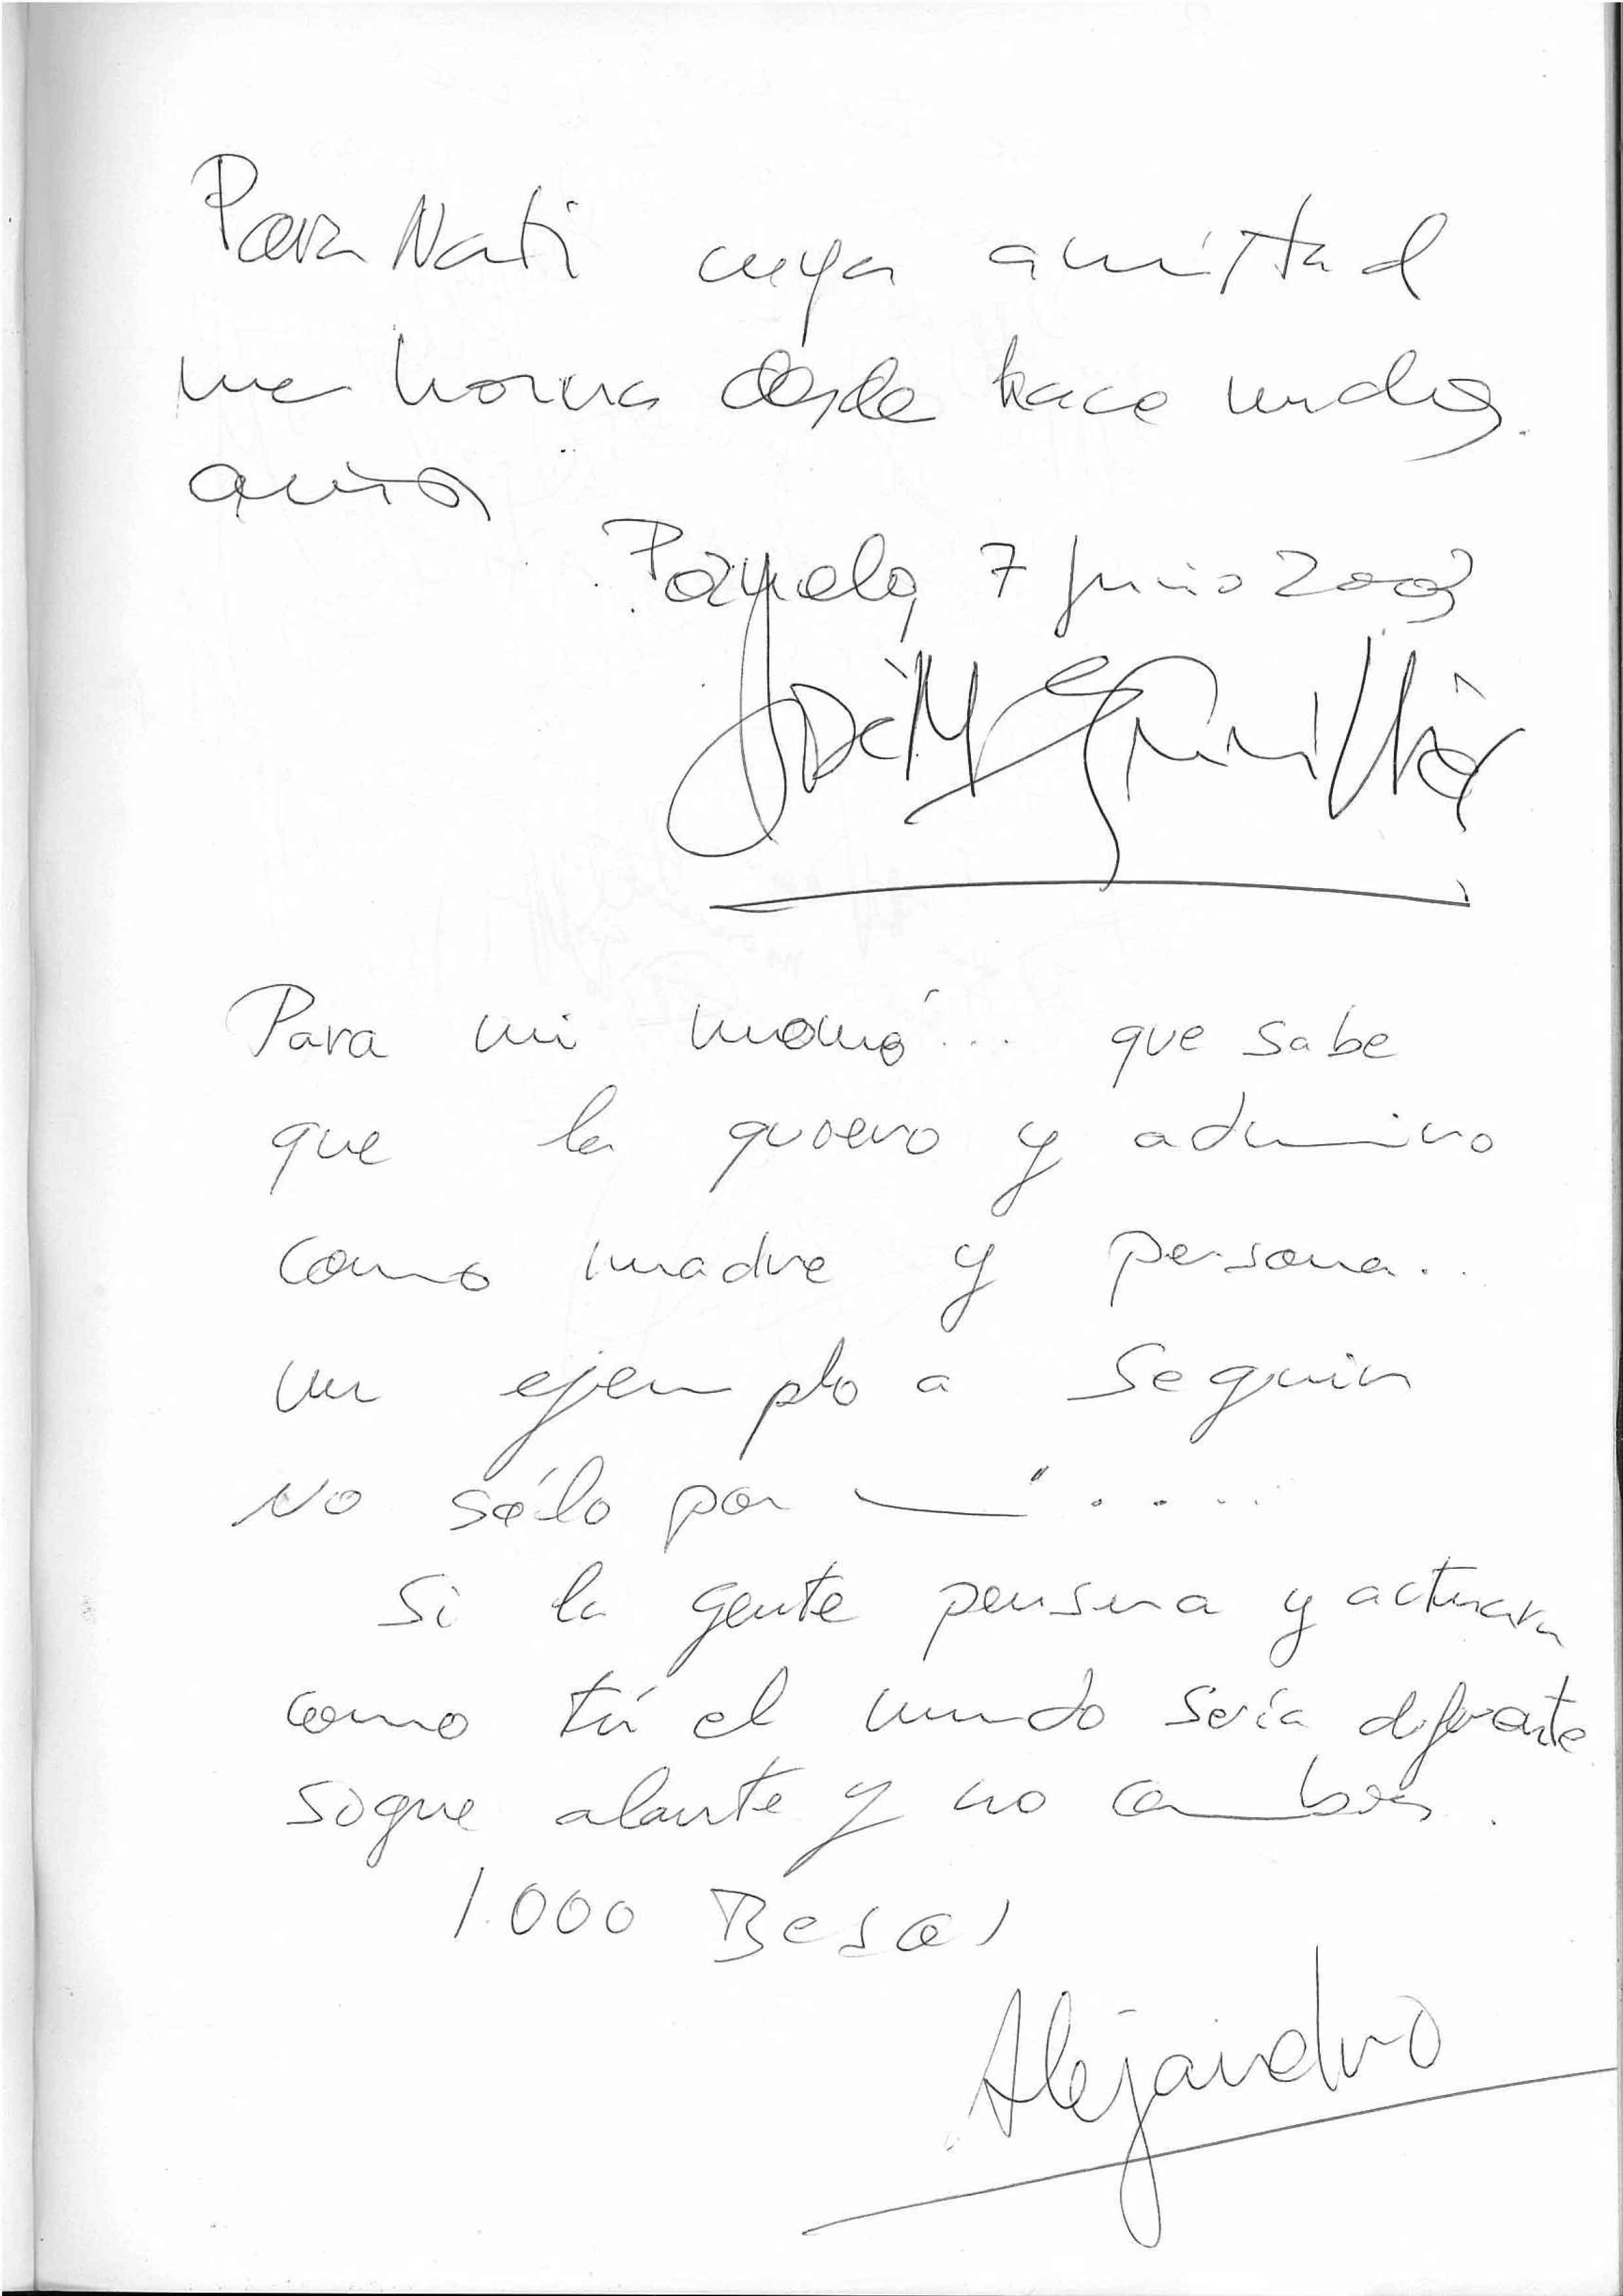 Para Nati cuya amistad
me honra desde hace muchos
años
Pozuelo, 7 junio 2003
José M
Para mi mamá... que sabe
que la quiero y admiro
como madre y persona..
un ejemplo a seguir
No sólo por mí.....
Si la gente pensara y actuara
como tú el mundo sería diferente
sigue alante y no cambies.
1.000 Besos
Alejandro